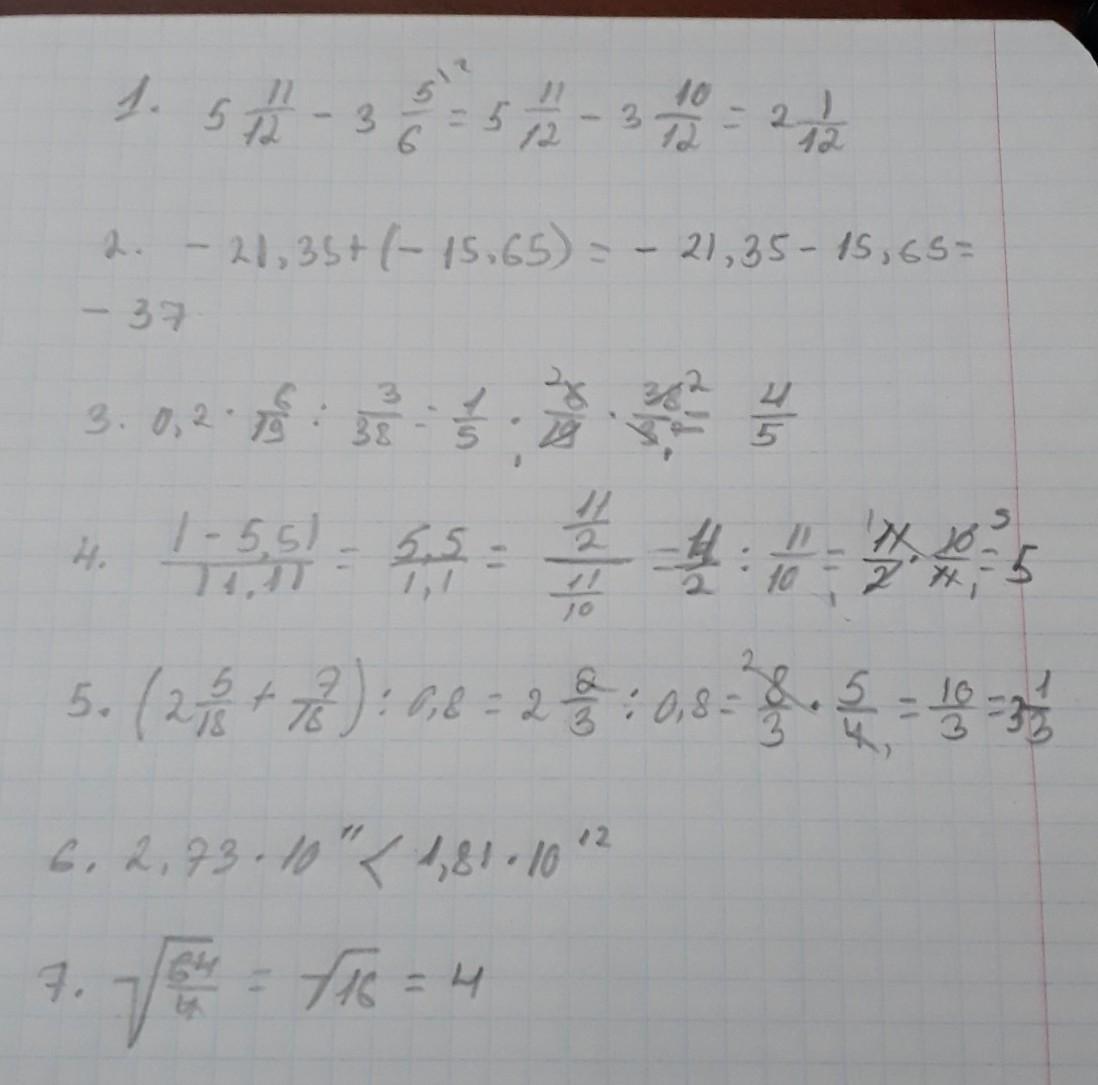 1. 5 11/12 - 3 5/6 = 5 11/12 - 3 10/12 = 2 1/12
2. - 21,35 + (- 15,65) = - 21,35 - 15,65 =
- 37
3. 0,2 · 6/19 : 3/38 = 1/5 · 6/19 · 38/3 = 4/5
4. |- 5,5| / |1,1| = 5,5/1,1 = 11/2 / 11/10 = 11/2 : 11/10 = 11/2 · 10/11 = 5
5. (2 5/18 + 7/18) : 0,8 = 2 2/3 : 0,8 = 8/3 · 5/4 = 10/3 = 3 1/3
6. 2,73 · 10¹¹ < 1,81 · 10¹²
7. √64/4 = √16 = 4